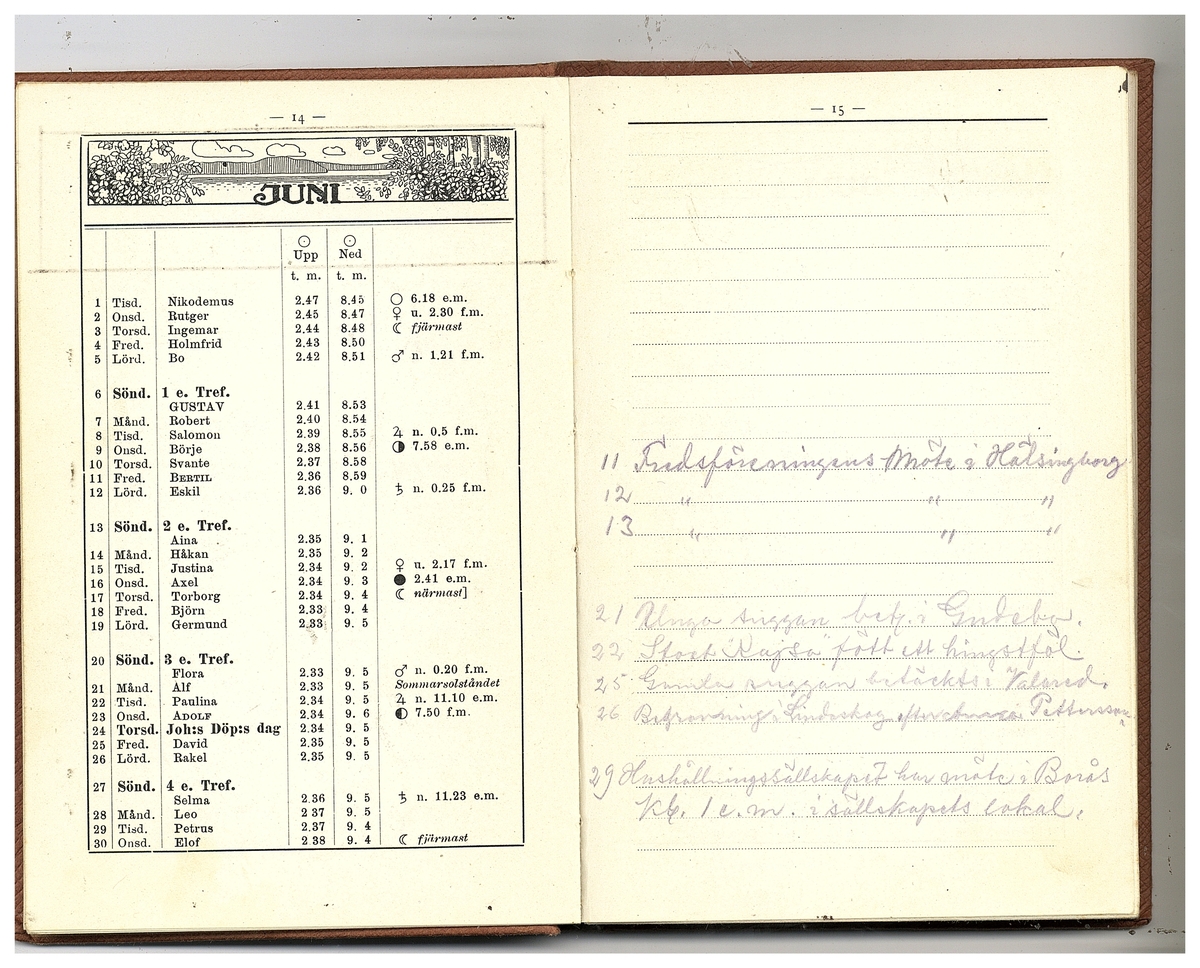 — 14 —
JUNI
☉ ☉
Upp Ned
t. m. t. m.
1 Tisd. Nikodemus 2.47 8.45 ○ 6.18 e.m.
2 Onsd. Rutger 2.45 8.47 ♀ u. 2.30 f.m.
3 Torsd. Ingemar 2.44 8.48 ☾ fjärmast
4 Fred. Holmfrid 2.43 8.50
5 Lörd. Bo 2.42 8.51 ♂ n. 1.21 f.m.
6 Sönd. 1 e. Tref.
GUSTAV 2.41 8.53
7 Månd. Robert 2.40 8.54
8 Tisd. Salomon 2.39 8.55 ♃ n. 0.5 f.m.
9 Onsd. Börje 2.38 8.56 ◑ 7.58 e.m.
10 Torsd. Svante 2.37 8.58
11 Fred. BERTIL 2.36 8.59
12 Lörd. Eskil 2.36 9. 0 ♄ n. 0.25 f.m.
13 Sönd. 2 e. Tref.
Aina 2.35 9. 1
14 Månd. Håkan 2.35 9. 2
15 Tisd. Justina 2.34 9. 2 ♀ u. 2.17 f.m.
16 Onsd. Axel 2.34 9. 3 ● 2.41 e.m.
17 Torsd. Torborg 2.34 9. 4 ☾ närmast]
18 Fred. Björn 2.33 9. 4
19 Lörd. Germund 2.33 9. 5
20 Sönd. 3 e. Tref.
Flora 2.33 9. 5 ♂ n. 0.20 f.m.
21 Månd. Alf 2.33 9. 5 Sommarsolståndet
22 Tisd. Paulina 2.34 9. 5 ♃ n. 11.10 e.m.
23 Onsd. ADOLF 2.34 9. 6 ◐ 7.50 f.m.
24 Torsd. Joh:s Döp:s dag 2.34 9. 5
25 Fred. David 2.35 9. 5
26 Lörd. Rakel 2.35 9. 5
27 Sönd. 4 e. Tref.
Selma 2.36 9. 5 ♄ n. 11.23 e.m.
28 Månd. Leo 2 37 9. 5
29 Tisd. Petrus 2.37 9. 4
30 Onsd. Elof 2 38 9. 4 ☾ fjärmast
— 15 —
11 Fredsföreningens Möte i Hälsingborg
12 " " "
13 " " "
21 Unga suggan bet. i Gudebo.
22 Stoet "Kajsa" fött ett hingstföl.
25 Gamla suggan betäckts i Valared.
26 Begravning i Lindeskog Pettersson
29 Hushållningssällskapet har möte i Borås
Kl. 1 e.m. i sällskapets lokal.